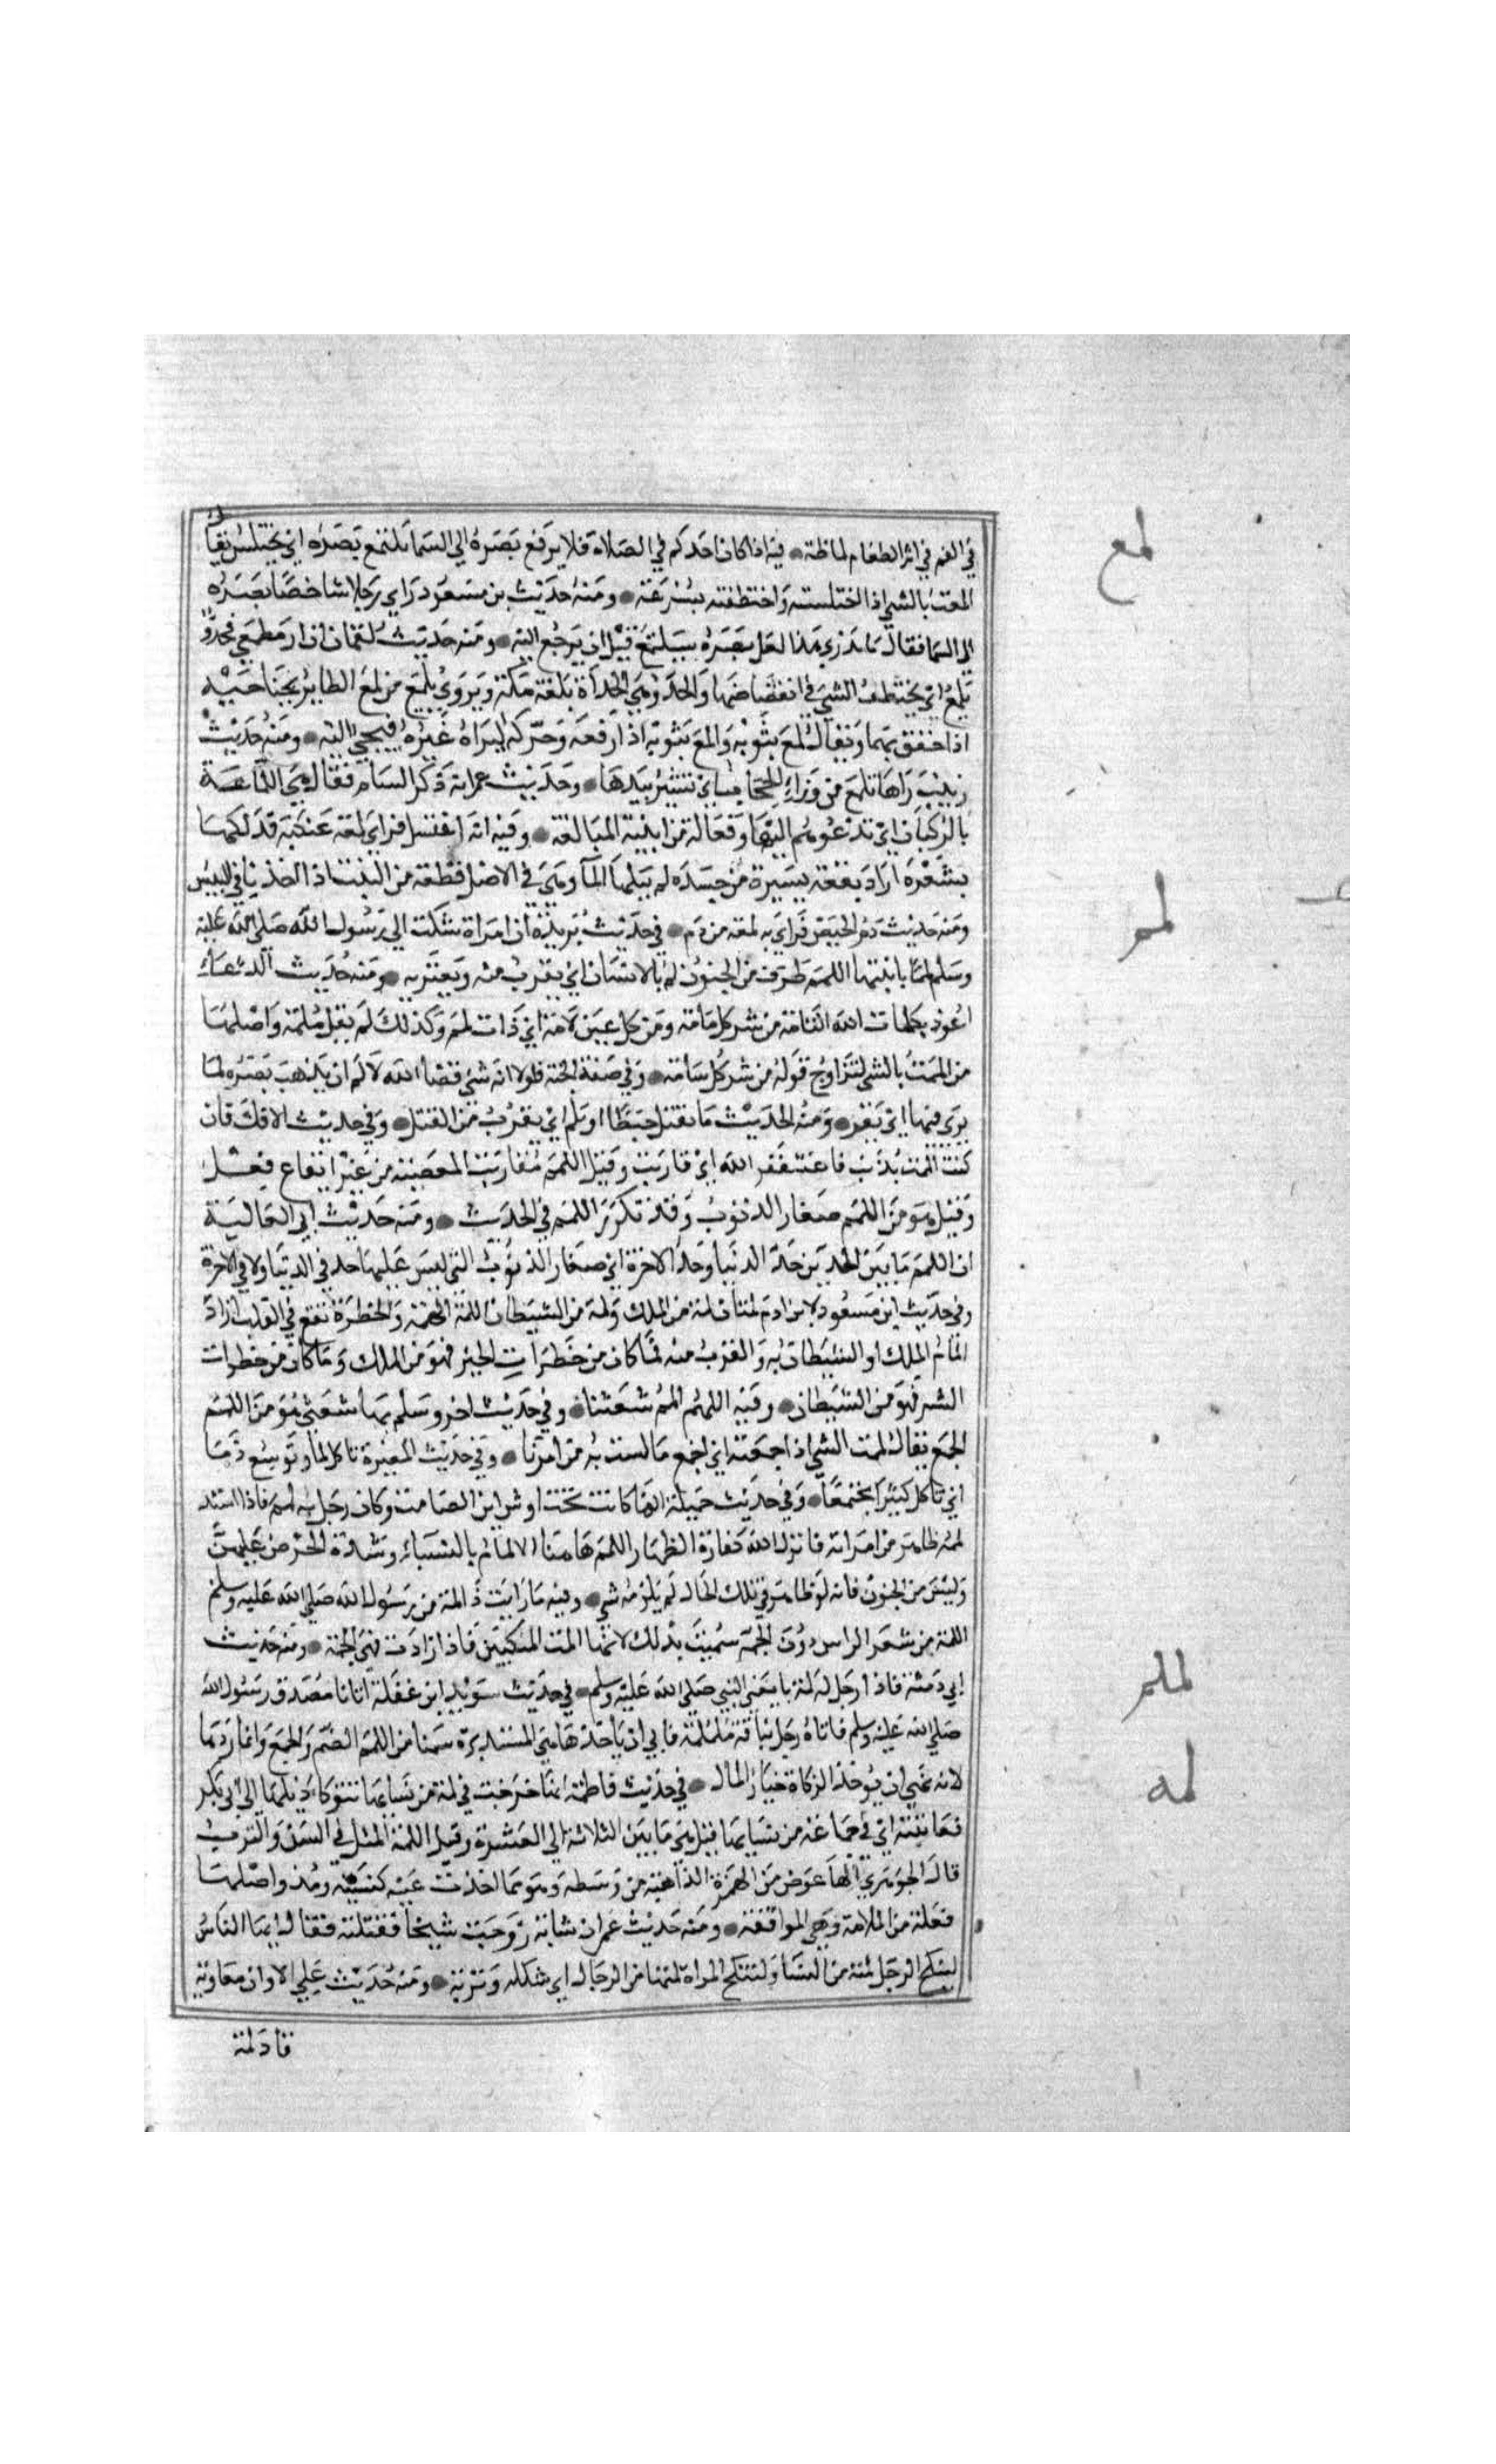 في الفم في اثر الطعام لماظة • فيه اذا كان احدكم في الصلاة فلا يرفع بصره الي السما يلتمع بصره اي يختلس يقال
لمع
المعت بالشي اذا اختلسته واختطفته بسرعة • ومنه حديث بن مسعود راي رجلا شاخصا بصره
الى السما فقال ما يدري هذا لعل بصره سيلتمع قبل ان يرجع اليه • ومنه حديث لقمان ان ار مطمعي فحدو
تلمع اي يختطف الشي في انقضاضها والحدو هي الحداة بلغة مكة ويروي تلمع من لمع الطاير بجناحيه
اذا خفق بهما ويقال لمع بثوبه والمع بثوبه اذا رفعه وحركه ليراه غيره فيجي اليه • ومنه حديث
زينب راها تلمع من ورا الحجاب اي تشير بيدها • وحديث عمر انه ذكر الشام فقال هي اللماعة
بالركبان اي تدعوهم اليها وفعالة من ابنية المبالغة • وفيه انه اغتسل فراي لمعة عنكبه فدلكها
بشعره اراد بقعة يسيرة من جسده لم ينلها المآ وهي في الاصل قطعة من النبت اذا اخذ نا في اليبس
ومنه حديث دم الحيض فراي به لمعة من دم • في حديث بريدة ان امراة شكت الي رسول الله صلي الله عليه
لمم
وسلم لمما بابنتها اللمم طرف من الجنون لم بالانسان اي يقرب منه ويعتريه • ومنه حديث الدعاء
اعوذ بكلمات الله التامة من شر كل سامة ومن كل عين لامة اي ذات لمم وكذلك لم يقل ملمة واصلها
من الممت بالشي لتزاوج قوله من شر كل سامة • وفي صفة الجنة فلولا انه شي قضا الله لا لم ان يذهب بصره لما
يري فيها اي يقرب • ومنه الحديث ما يقتل حبطا او يلم اي يقرب من القتل • وفي حديث الافك فان
كنت الممت بذنب فاستغفر الله اي قاربت وقيل اللمم مقاربت المعصية من غير ايقاع فعل
وقيل هو من اللمم صغار الذنوب وقد تكرر اللمم في الحديث • ومنه حديث ابي العالية
ان اللمم ما بين الحدين حد الدنيا وحد الاخرة اي صغار الذنوب التي ليس عليها حد في الدنيا ولا في الاخرة
وفي حديث ابن مسعود لابن ادم لمتان لمة من الملك ولمة من الشيطان اللمة الهمة والخطرة تقع في القلب اراد
المام الملك او الشيطان به والقرب منه فما كان من خطرات الخير فهو من الملك وما كان من خطرات
الشر فهو من الشيطان • وفيه اللهم المم شعثنا • وفي حديث اخر وسلم بها شعثي هو من اللمم
الجمع يقال لممت الشي اذا جمعته اي اجمع ما تشتت به من امرنا • وفي حديث المغيرة تاكل لما وتوسع ذما
اي تاكل كثيرا مجتمعا • وفي حديث جميلة انها كانت تحت اوس ابن الصامت وكان رجل به لمم فاذا اشتد
لممه ظاهر من امراته فانزل الله كفارة الظهار اللمم هاهنا الالمام بالنساء وشدة الحرص عليهن
وليس من الجنون فانه لو ظاهر في تلك الحال لم يلزمه شي • وفيه ما رايت ذا لمة من رسول الله صلي الله عليه وسلم
اللمة من شعر الراس دون الجمة سميت بذلك لانها المت المنكبين فاذا زادت فهي الجمة • ومنه حديث
ابي رمثة فاذا رجل له لمة يعني النبي صلي الله عليه وسلم • في حديث سويد ابن غفلة اتانا مصدق رسول الله
لملم
صلي الله عليه وسلم فاتاه رجل بناقة ململمة فابي ان ياخذها هي المستديرة سمنا من اللمم الضم والجمع وانما ردها
لانه نهي ان يؤخذ في الزكاة خيار المال • في حديث فاطمة انها خرجت في لمة من نسايها تتوطا ذيلها الي ابي بكر
لمه
فعاتبته اي في جماعة من نسايها قيل هي ما بين الثلاثة الي العشرة وقيل اللمة المثل في السن والترب
قال الجوهري الها عوض من الهمزة الذاهبة من وسطه وهو مما اخذت عينه كسه ومذ واصلها
فعلة من الملامة وهي الموافقة • ومنه حديث عمر ان شابة زوجت شيخا فقتلته فقال ايها الناس
لينكح الرجل لمته من النسا ولتنكح المراة لمتها من الرجال اي شكله وتربه • ومنه حديث علي الا وان معاوية
قاد لمة